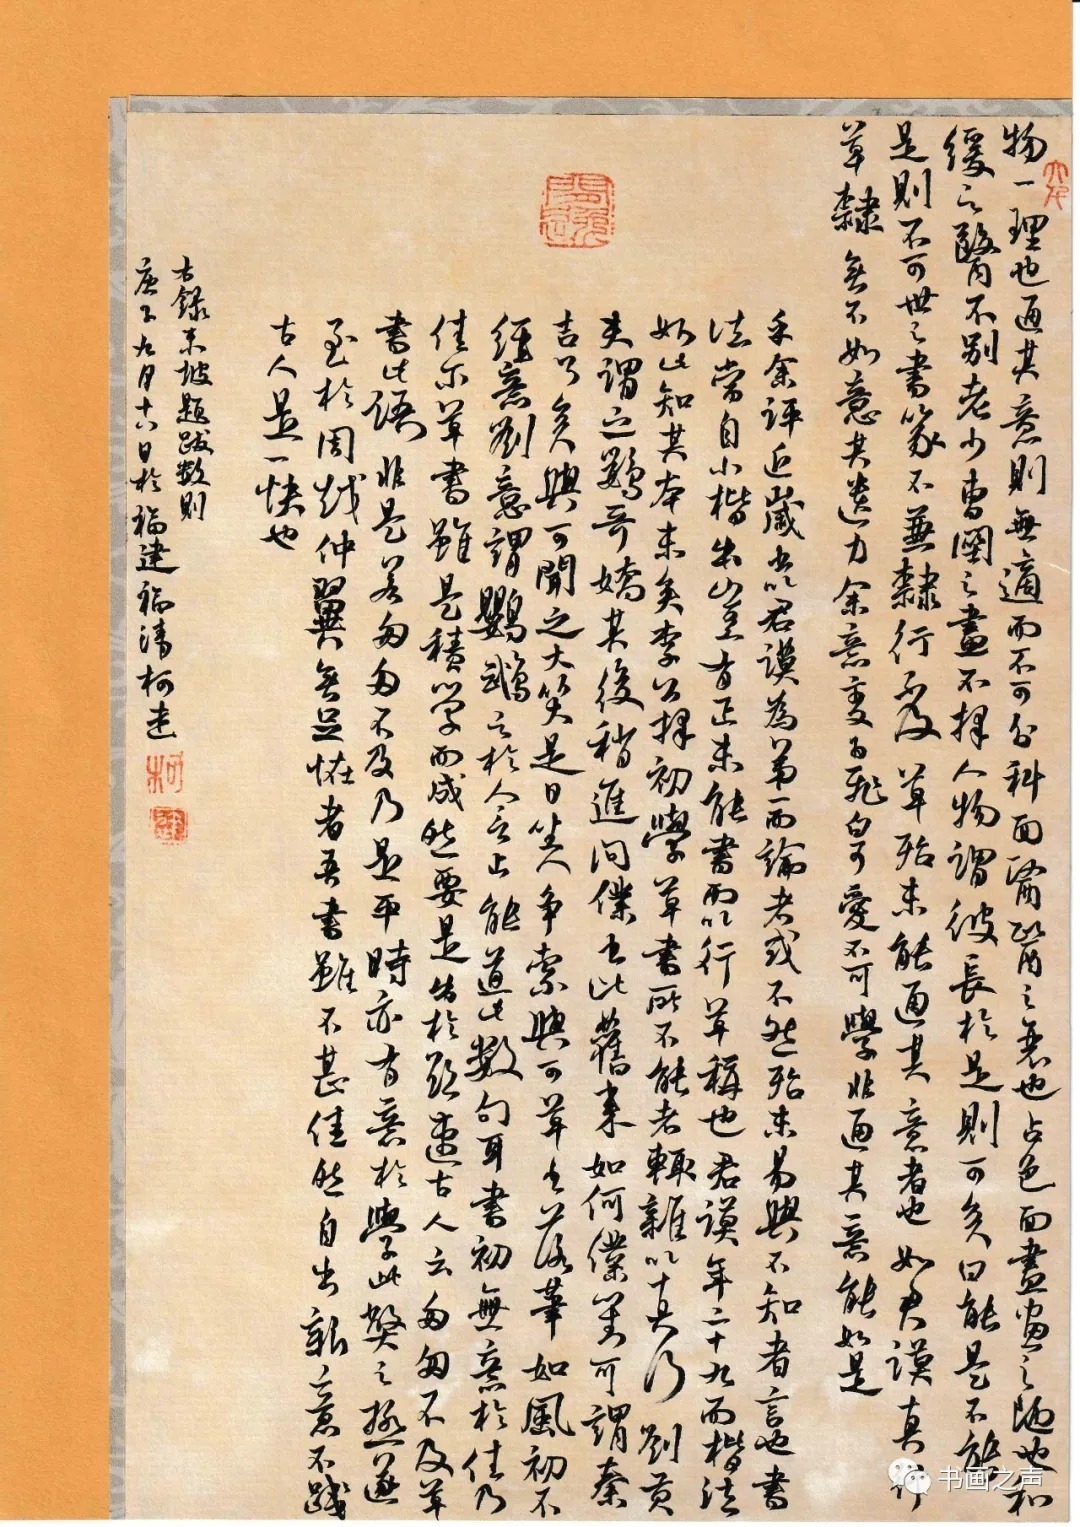 物一理也通其意則無適而不可分科而醫醫之衰也占色而畫畫之陋也和
緩之醫不別老少曹閻之畫不擇人物謂彼長於是則可矣曰能是不能
是則不可世之書篆不兼隸行不及草殆未能通其意者也如君謨真行
草隸無不如意其遺力餘意變為飛白可愛而不可學非通其意能如是
乎余評近歲書以君謨為第一而論者或不然殆未易與不知者言也書
法當自小楷出豈有正未能書而以行草稱也君謨年二十九而楷法
如此知其本末矣李公擇初學草書所不能者輒雜以真行劉貢
父謂之鸚哥嬌其後稍進問僕書此舊來如何僕對可謂秦
吉了矣與可聞之大笑是日坐人爭索與可草書落筆如風初不
經意劉意謂鸚鵡之於人言止能道此數句耳書初無意於佳乃
佳爾草書雖是積學而成然要是出於欲速古人云匆匆不及草
書此語非是若匆匆不及乃是平時亦有意於學此弊之極遂
至於周越仲翼無足怪者吾書雖不甚佳然自出新意不踐
古人是一快也
右錄東坡題跋數則
庚子九月十六日於福建福清柯
柯
书画之声